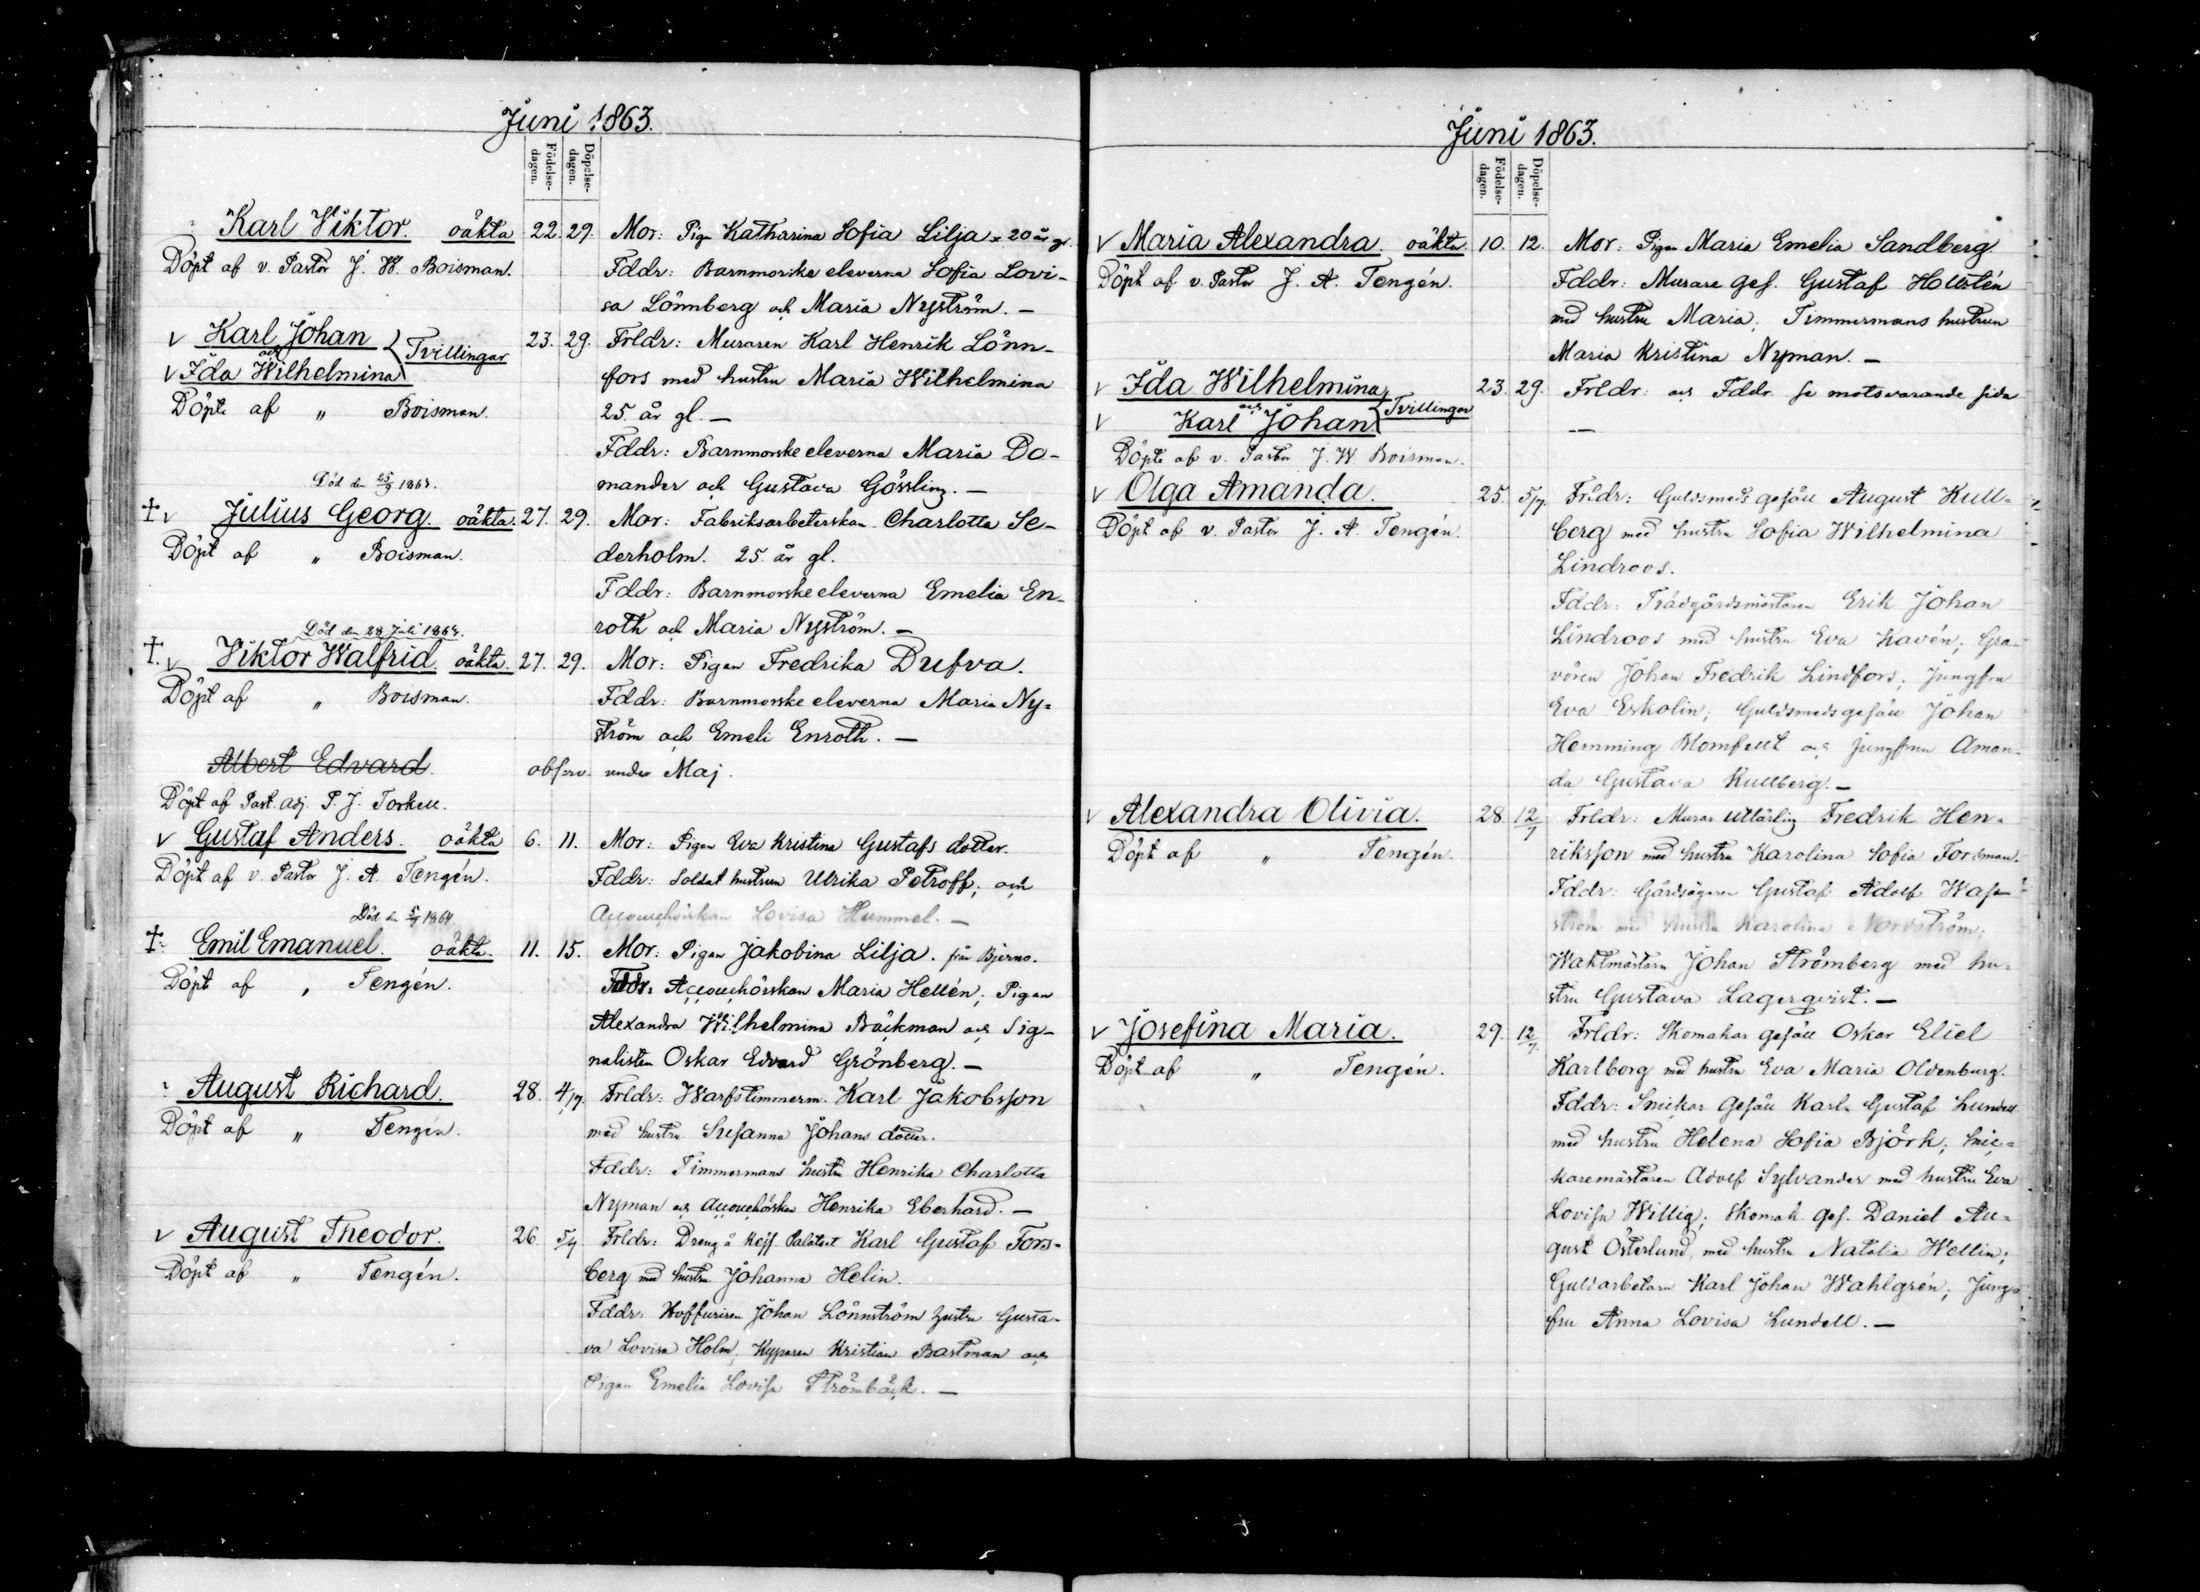 Juni 1863.
Födelse-
dagen.
Döpelse-
dagen.
Karl Viktor. oäkta 22. 29. Mor: Pig. Katharina Sofia Lilja 20 år gl.
Döpt af v. Pastor J. W. Boisman. Fddr: Barnmorske eleverna Sofia Lovi-
sa Lönnberg och Maria Nyström. —
v Karl Johan 23. 29. Frldr: Muraren Karl Henrik Lönn-
och Tvillingar
v Ida Wilhelmina fors med hustru Maria Wilhelmina
Döpte af „ Boisman. 25 år gl. —
Fddr: Barnmorske eleverna Maria Do-
Död den 25/9 1863. mander och Gustava Gössling. —
† v Julius Georg. oäkta. 27. 29. Mor: Fabriksarbeterskan Charlotta Se-
Döpt af „ Boisman. derholm. 25 år gl.
Fddr: Barnmorske eleverna Emelia En-
Död den 28 Juli 1863. roth och Maria Nyström. —
† v Viktor Walfrid. oäkta. 27. 29. Mor: Pigan Fredrika Dufva.
Döpt af „ Boisman. Fddr: Barnmorske eleverna Maria Ny-
ström och Emeli Enroth. —
Albert Edvard. observ. under Maj.
Döpt af Past. adj. P. J. Torkell.
v Gustaf Anders. oäkta 6. 11. Mor: Pigan Eva Kristina Gustafs dotter.
Döpt af v. Pastor J. A. Tengén. Fddr: Soldat hustrun Ulrika Petroff; och
Död den 1864. Accouchörskan Lovisa Hummel. —
† Emil Emanuel. oäkta. 11. 15. Mor: Pigan Jakobina Lilja. från Bjerno.
Döpt af „ Tengén. Fddr: Accouchörskan Maria Hellén; Pigan
Alexandra Wilhelmina Bäckman och Sig-
nalisten Oskar Edvard Grönberg. —
August Richard. 28. 4/7. Frldr: Warfstimmerm. Karl Jakobsson
Döpt af „ Tengén. med hustru Susanna Johans dotter.
Fddr: Timmermans hustru Henrika Charlotta
Nyman och Accouchörskan Henrika Eberhard. —
v August Theodor. 26. 5/7 Frldr: Dreng å Kejs. Palatset Karl Gustaf Fors-
Döpt af „ Tengén. berg med hustru Johanna Helin.
Fddr: Hoffuriren Johan Lönnström hustru Gusta-
va Lovisa Holm, Kyparen Kristian Bastman och
Pigan Emelia Lovisa Strömbäck. —
Juni 1863.
Födelse-
dagen.
Döpelse-
dagen.
v Maria Alexandra oäkta 10. 12. Mor: Pigan Maria Emelia Sandberg.
Döpt af v. Pastor J. A. Tengén. Fddr: Murare ges. Gustaf Hollstén
med hustru Maria; Timmermans hustrun
Maria Kristina Nyman. —
v Ida Wilhelmina 23. 29. Frldr: och Fddr se motsvarande sida
och Tvillingar
v Karl Johan —
Döpte af v. Pastor J. W. Boisman.
v Olga Amanda. 25. 5/7. Frldr: Guldsmeds gesäll August Kull-
Döpt af v. Pastor J. A. Tengén. berg med hustru Sofia Wilhelmina
Lindroos.
Fddr: Trädgårdsmästaren Erik Johan
Lindroos med hustru Eva Kavén; Gra-
vören Johan Fredrik Lindfors; Jungfru
Eva Eskolin; Guldsmedsgesäll Johan
Hemming Blomfelt och Jungfrun Aman-
da Gustava Kullberg. —
v Alexandra Olivia. 28. 12/7 Frldr: Murar utlärling Fredrik Hen-
Döpt af „ Tengén. riksson med hustru Karolina Sofia Forsman.
Fddr: Gårdsägaren Gustaf Adolf Wass-
ström med hustru Karolina Nordström;
Waktmästaren Johan Strömberg med hu-
stru Gustava Lagerqvist. —
v Josefina Maria. 29. 12/7. Frldr: Skomakar gesäll Oskar Eliel
Döpt af „ Tengén. Karlborg med hustru Eva Maria Oldenburg.
Fddr: Snickar Gesäll Karl Gustaf Lundell
med hustru Helena Sofia Björk; Snic-
karemästaren Adolf Sylvander med hustru Eva
Lovisa Willig; Skomak. Ges. Daniel Au-
gust Österlund, med hustru Natalia Wellin;
Guldarbetaren Karl Johan Wahlgrén; Jung-
fru Anna Lovisa Lundell. —